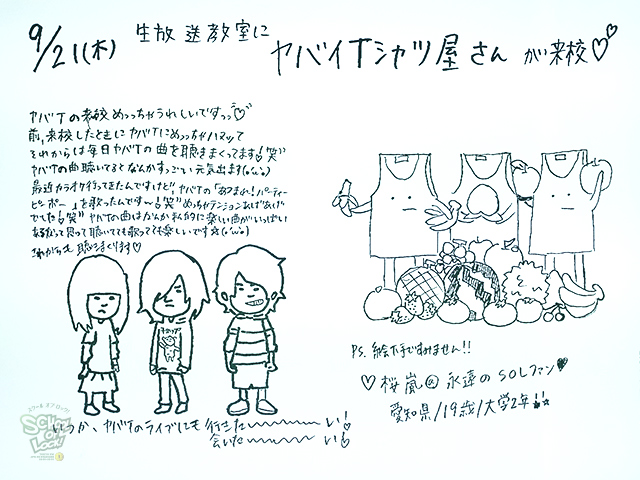 9/21(木) 生放送教室に ヤバイTシャツ屋さん が来校♡♡
ヤバTの来校めっっちゃうれしいですっっ♡
前、来校したときにヤバTにめっっちゃハマって
それからは毎日ヤバTの曲を聴きまくってます!笑
ヤバTの曲聴いてるとなんかすっごい元気出ます(o'ω'o)
最近カラオケ行ってきたんですけど、ヤバTの「あつまれ!パーティー
ピーポー」を歌ったんです〜!笑 めっちゃテンションあげあげ
でした!笑 ヤバTの曲はなんか私的に楽しい曲がいっぱい
あるなって思って聴いてても歌ってても楽しいです☆(o'ω'o)
これからも聴きまくります♡
いつか、ヤバTのライブにも 行きた〜〜〜い!
会いた〜〜〜い!
P.S. 絵下手ですみません!!
♡桜嵐@永遠のSOLファン♥
愛知県/19歳/大学2年!!
SCHOOL OF LOCK!